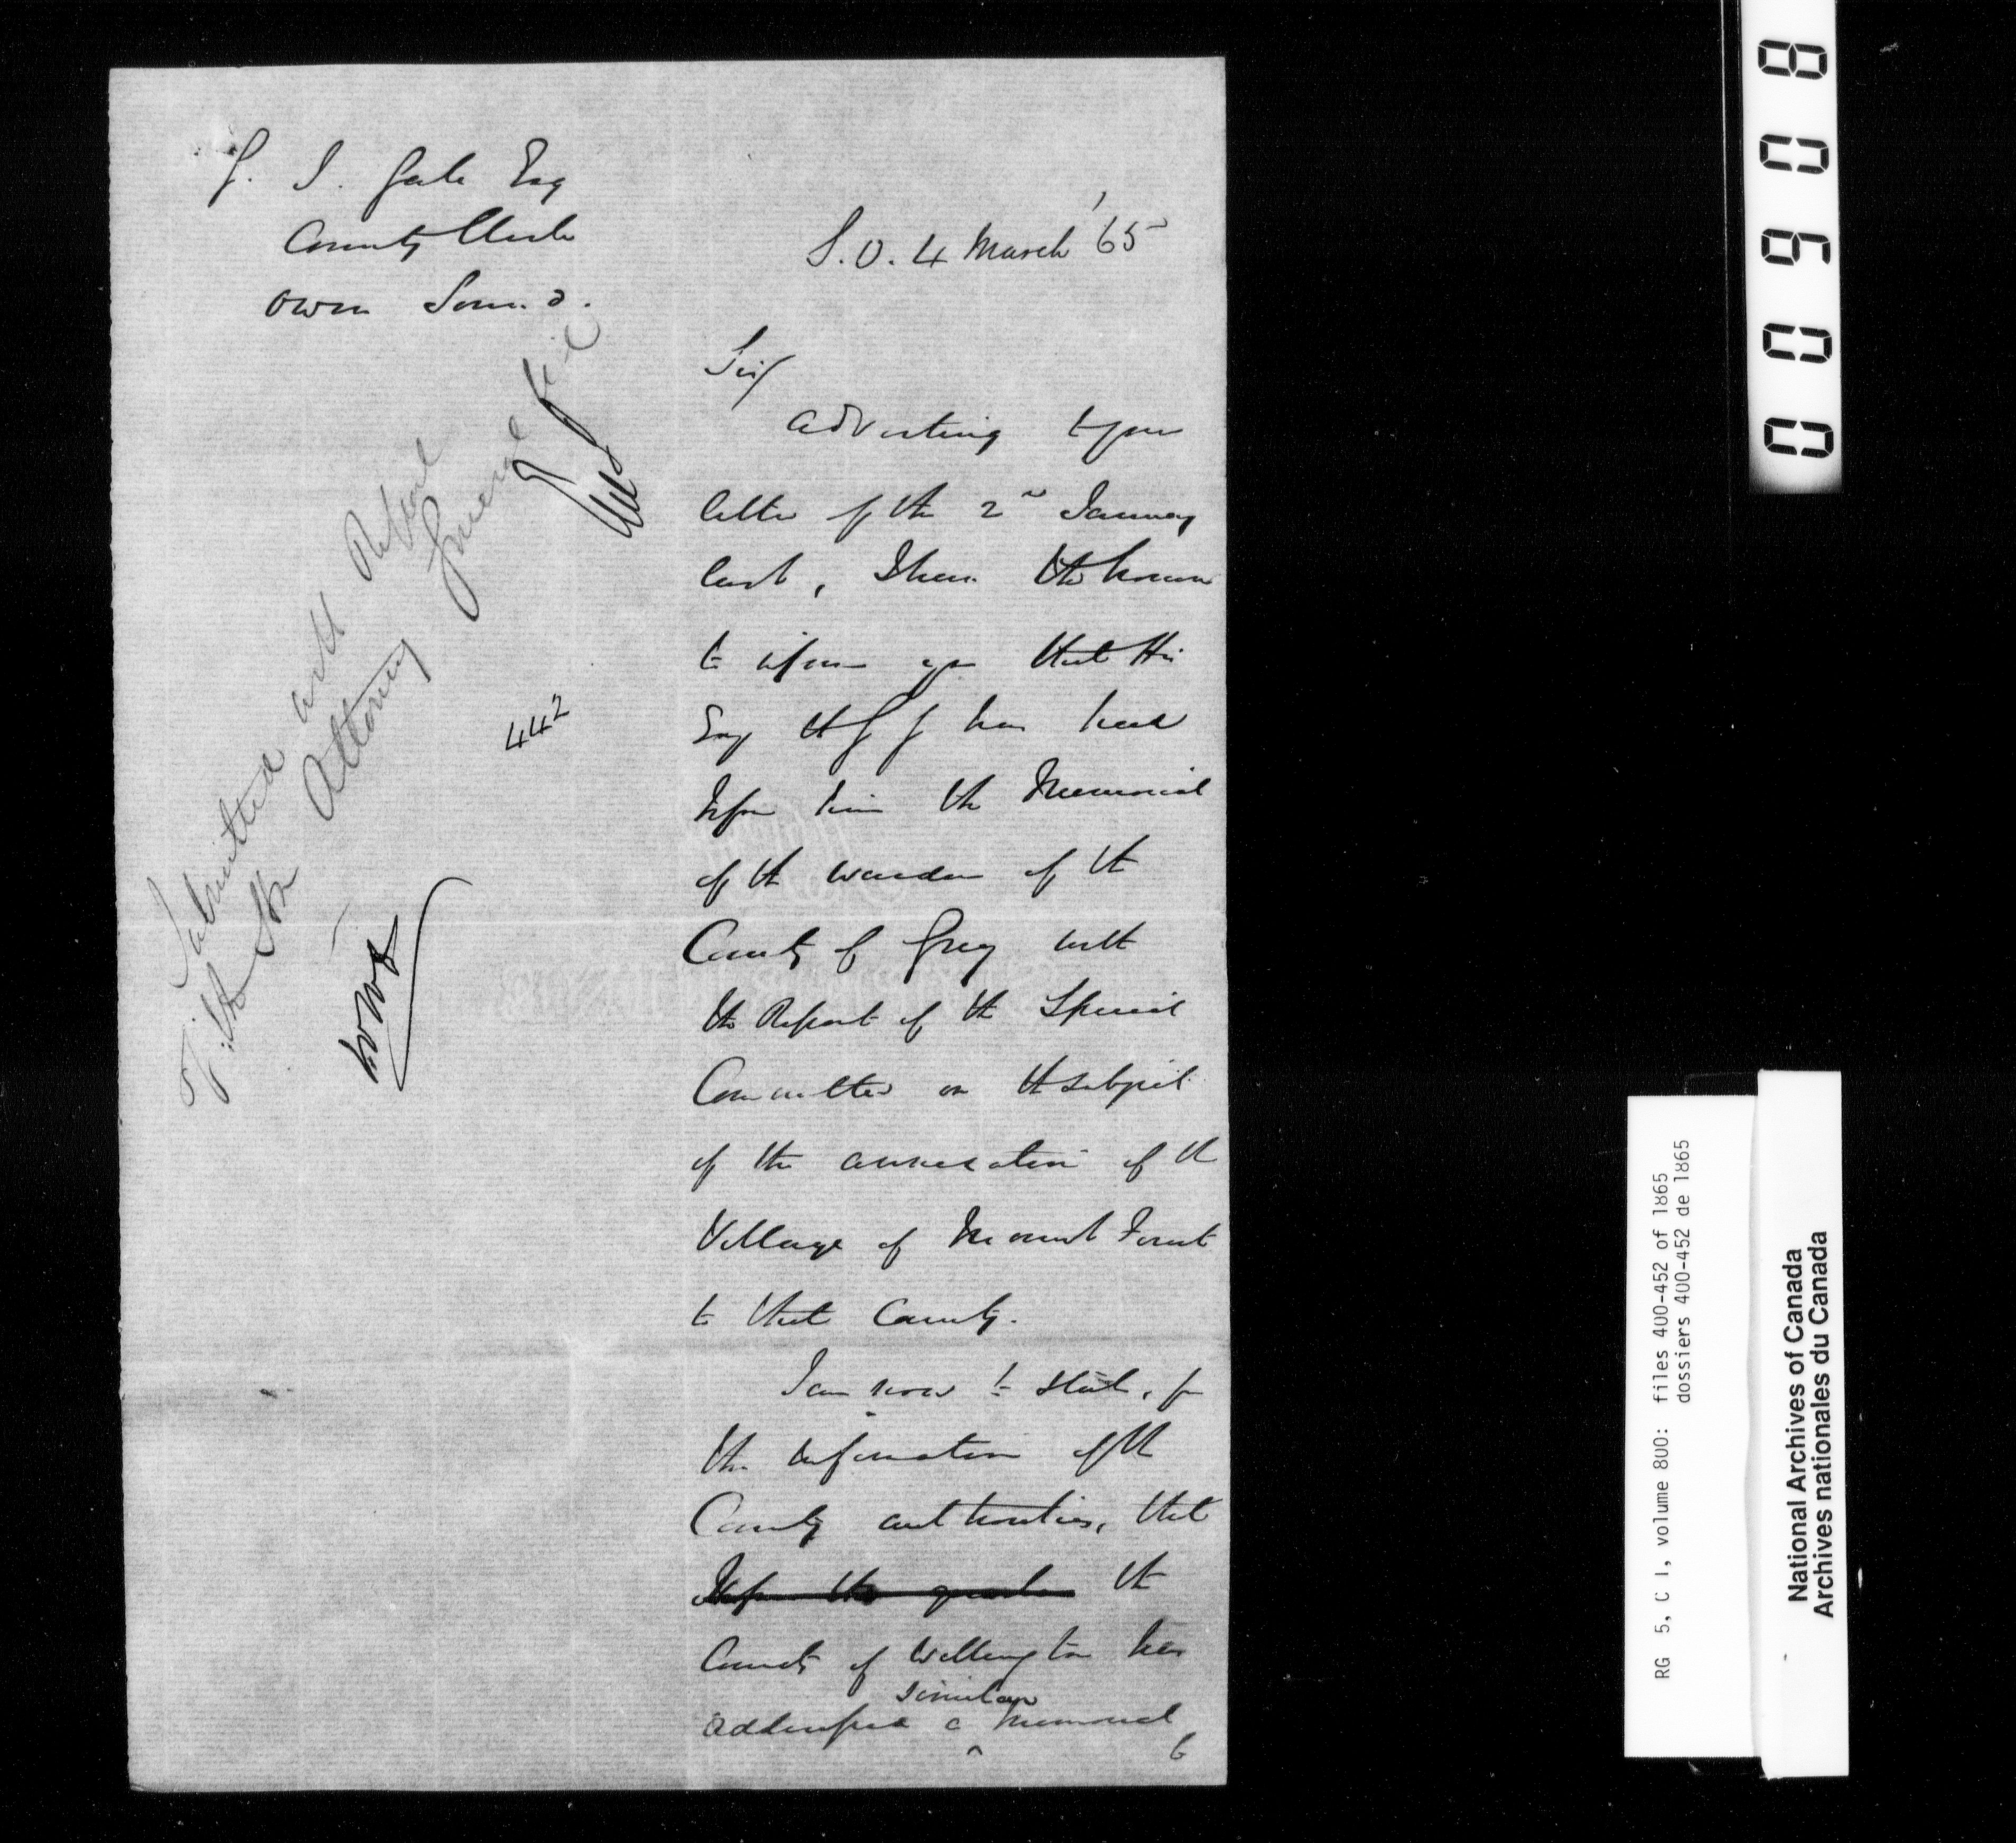 G. J. Gale Esq
County Clerk
Owen Sound.
S.O. 4 March '65
Sir/
Adverting to your
letter of the 2nd January
last, I have the honour
to inform you that His
Exy the G G has had
before him the Memorial
of the Warden of the
County of Grey with
the Report of the Special
Committee on the subject
of the annexation of the
Village of Mount Forest
to that County.
I am now to state, for
the information of the
County authorities, that
Before the the
County of Wellington has
similar
addressed a ^ memorial
to
Submitted with Report
of the Hon Attorney General
442
8 0 6 0 0
RG 5, C 1, volume 800: files 400-452 of 1865
dossiers 400-452 de 1865
National Archives of Canada
Archives nationales du Canada